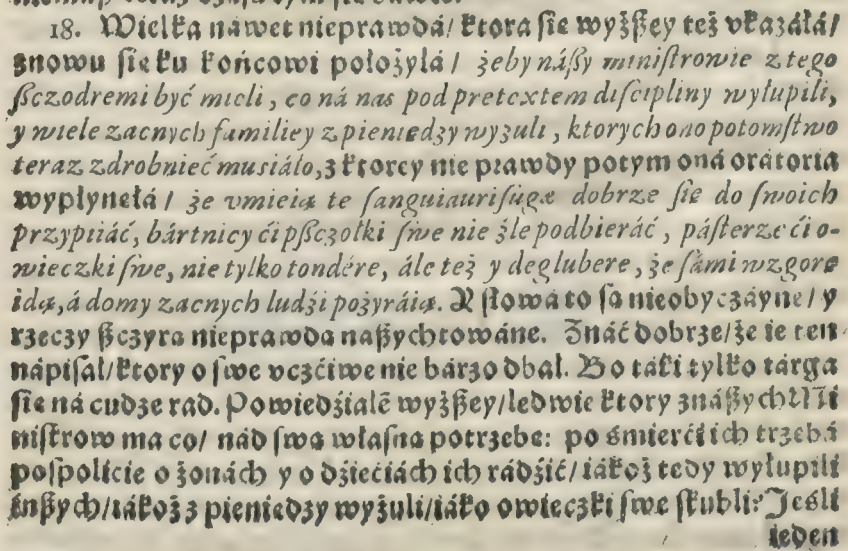 18. Wielka náwet nieprawdá/ ktora ſie wyżßey też vkazáłá/
znowu ſie ku końcowi położyłá / żeby náßy miniſtrowie z tego
ſzczodremi być mieli, co ná nas pod pretextem diſcipliny wyłupili,
y wiele zacnych familiey z pieniedzy wyzuli, ktorych ono potomſtwo
teraz zdrobnieć muśiáło, z ktorey nie prawdy potym oná orátoria
wypłynełá / że vmieią te ſanguiſugæ dobrze ſie do ſwoich
przypiiáć, bártnicy ći pſczołki ſwe nie źle podbieráć, páſterze ći o-
wieczki ſwe, nie tylko tondére, ále też y deglubere, że ſámi wzgore
idą, á domy zacnych ludźi pożyráią. A ſłowá to ſą nieobyczáyne / y
rzeczy ßczyrą nieprawdą naßych towáne. Znáć dobrze/ że ie ten
nápiſał/ ktory o ſwe vczćiwe nie bárzo dbał. Bo táki tylko tárga
ſie ná cudze rad. Powiedźiałẽ wyżßey/ ledwie ktory z náßych Mi
niſtrow ma co/ nád ſwą właſną potrzebe: po śmierći ich trzebá
poſpolicie o żonách y o dźiećiách ich rádźić/ iákoż tedy wyłupili
inßych/ iákoż z pieniedzy wyzuli/ iáko owieczki ſwe ſkubli? Jeśli
ieden